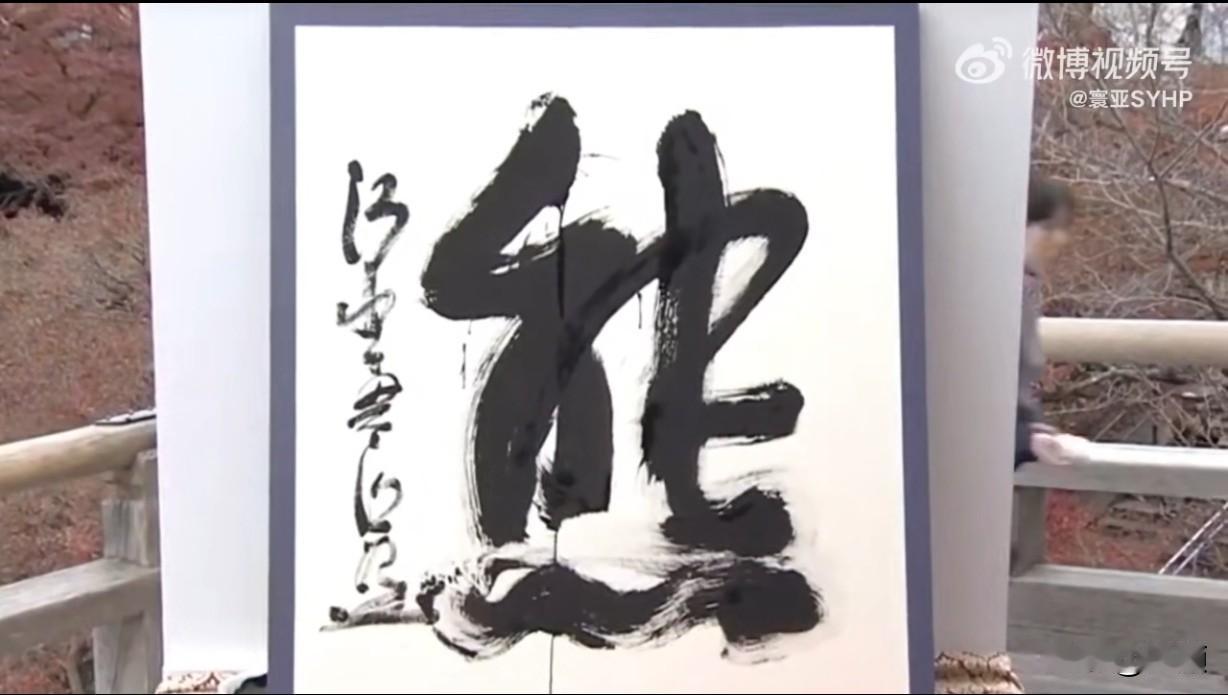 微博视频号
@寰亚SYHP
熊